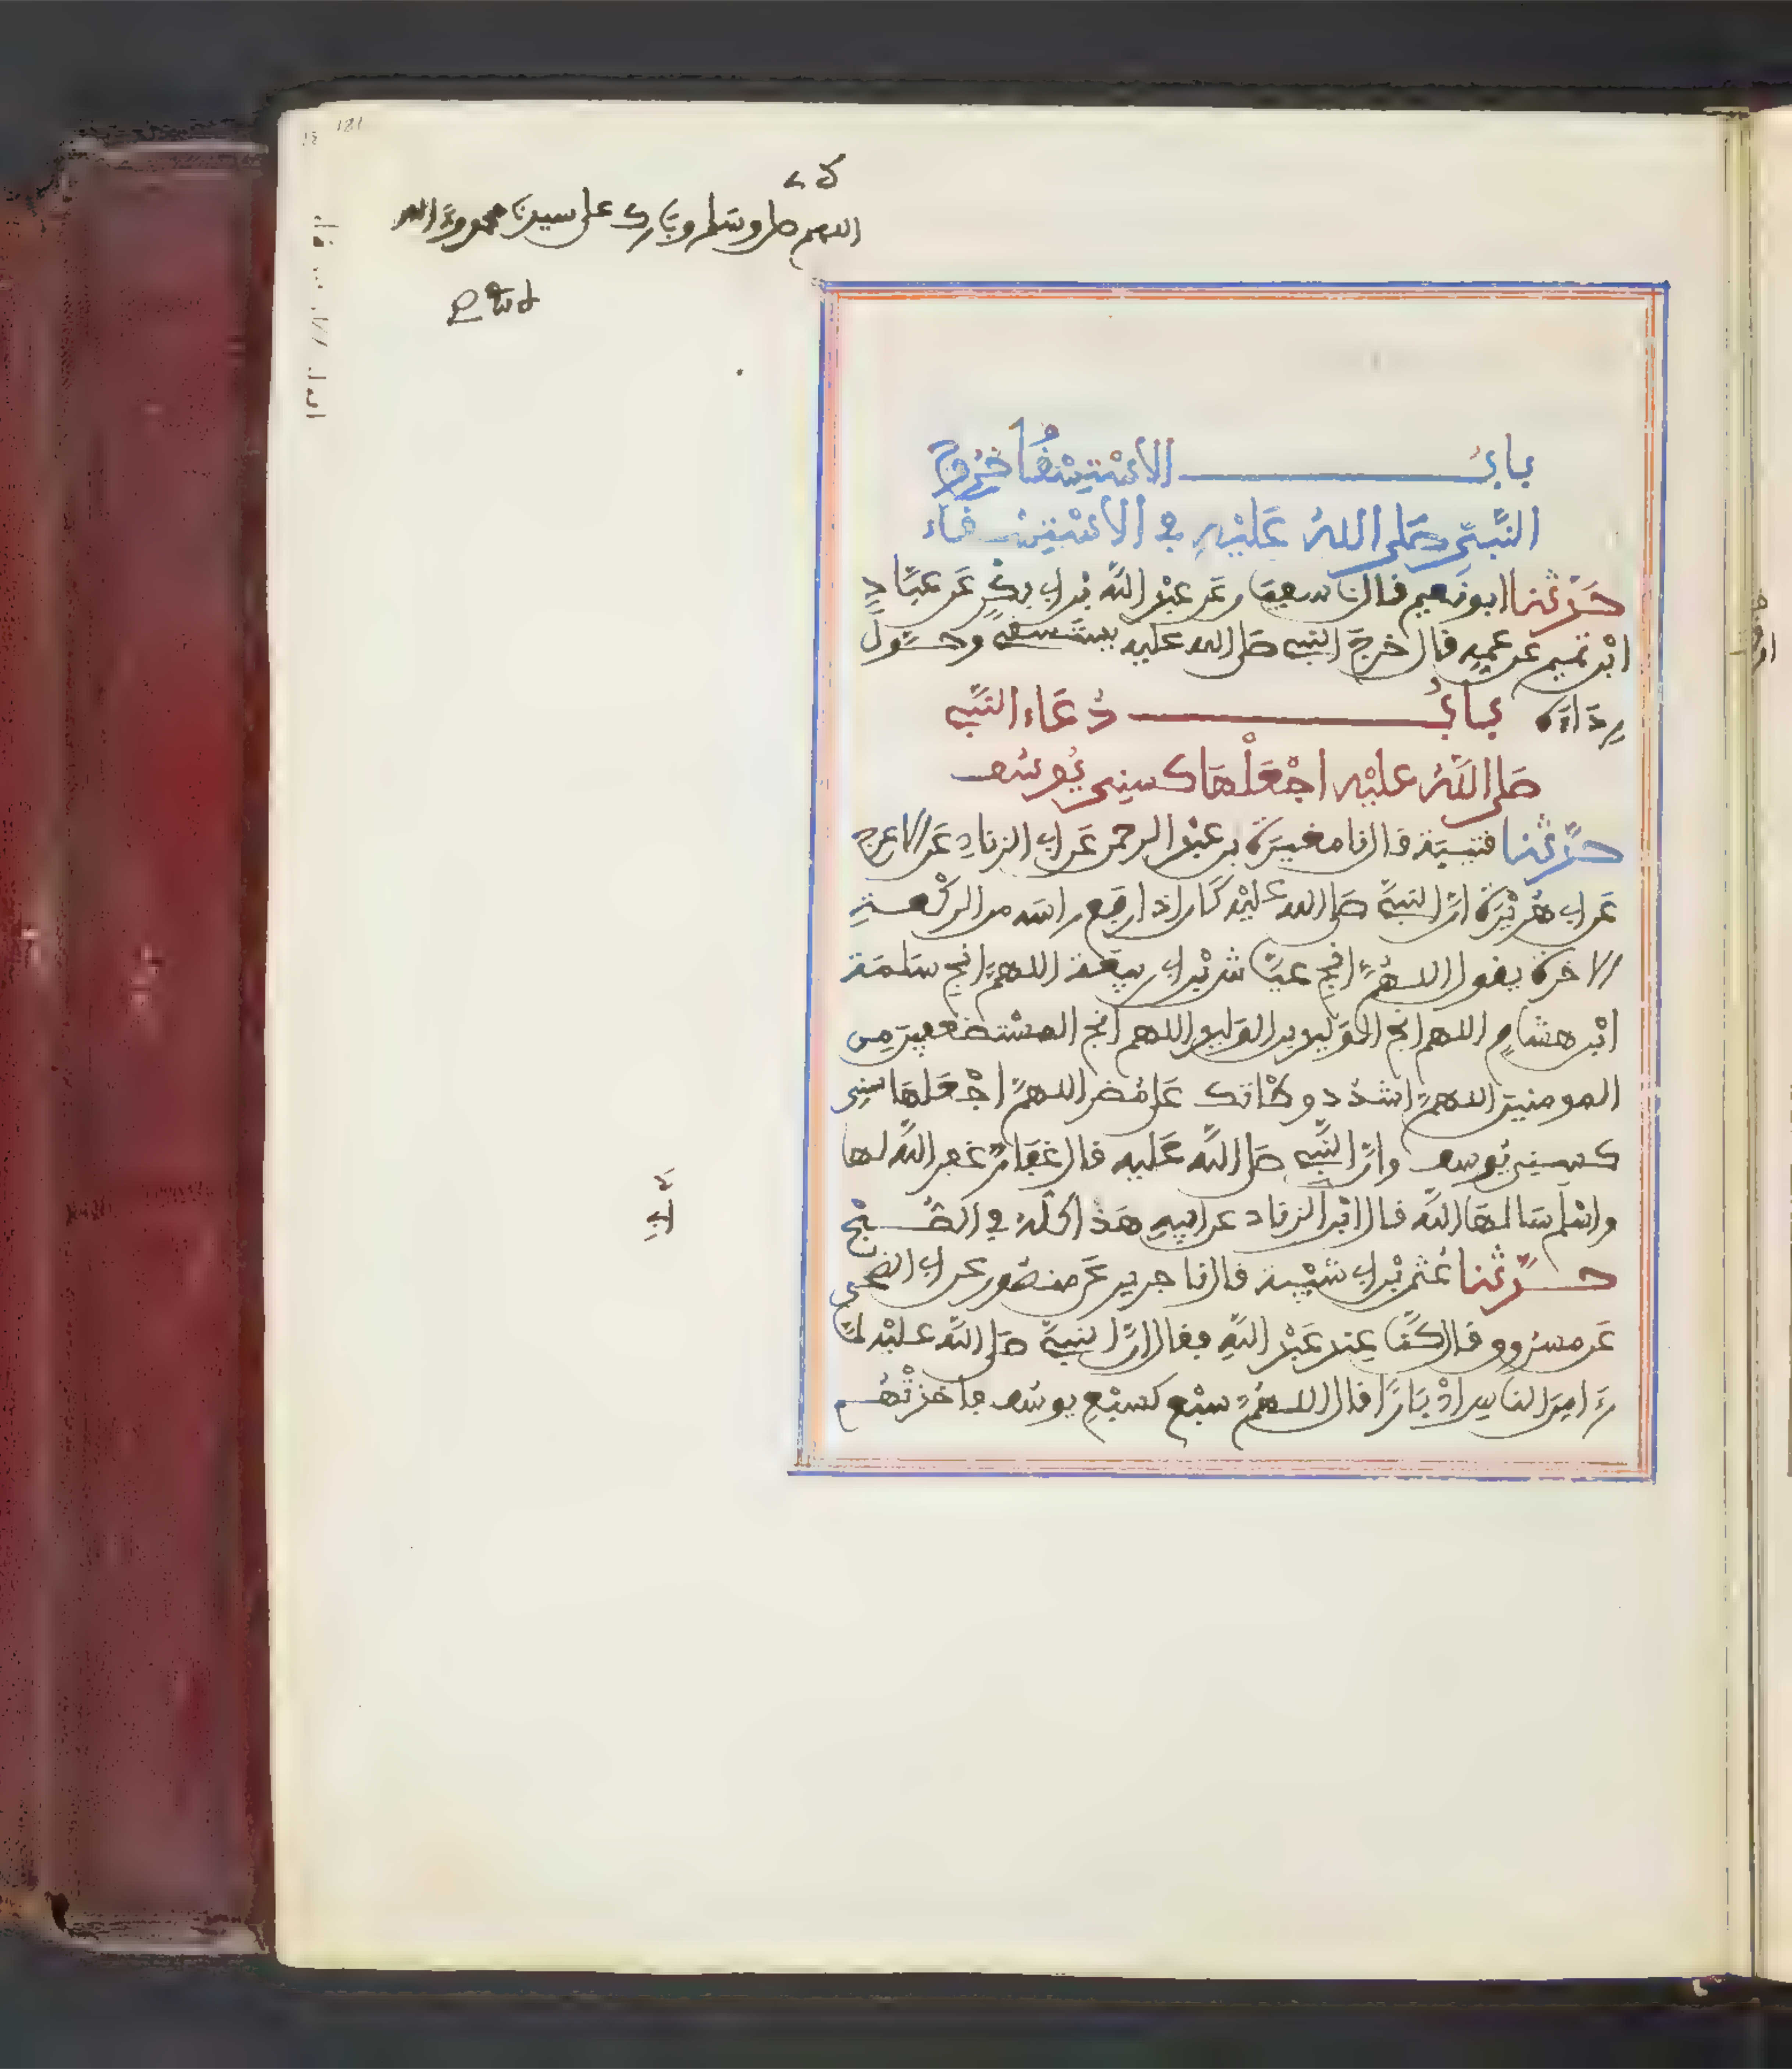 اللهم صل وسلم وبارك على سيدنا محمد وءاله
باب الاستسقا خروج
النبي صلى الله عليه في الاستسقاء
حدثنا ابو نعيم قال نا سفين عن عبد الله بن ابي بكر عن عباد
ابن تميم عن عمه قال خرج النبي صلى الله عليه يستسقي وحول
رداءه باب دعاء النبي
صلى الله عليه اجعلها كسني يوسف
حدثنا قتيبة قال نا مغيرة بن عبد الرحمن عن ابي الزناد عن الاعرج
عن ابي هريرة ان النبي صلى الله عليه كان اذا رفع راسه من الركعة
الاخرة يقول اللهم انج عياش بن ابي ربيعة اللهم انج سلمة
ابن هشام اللهم انج الوليد بن الوليد اللهم انج المستضعفين من
المومنين اللهم اشدد وطاتك على مضر اللهم اجعلها سني
كسني يوسف وان النبي صلى الله عليه قال غفار غفر الله لها
واسلم سالمها الله قال ابن ابي الزناد عن ابيه هذا كله في الصبح
حدثنا عثمن بن ابي شيبة قال نا جرير عن منصور عن ابي الضحى
عن مسروق قال كنا عند عبد الله فقال ان النبي صلى الله عليه لما
رءا من الناس ادبارا قال اللهم سبع كسبع يوسف فاخذتهم
181